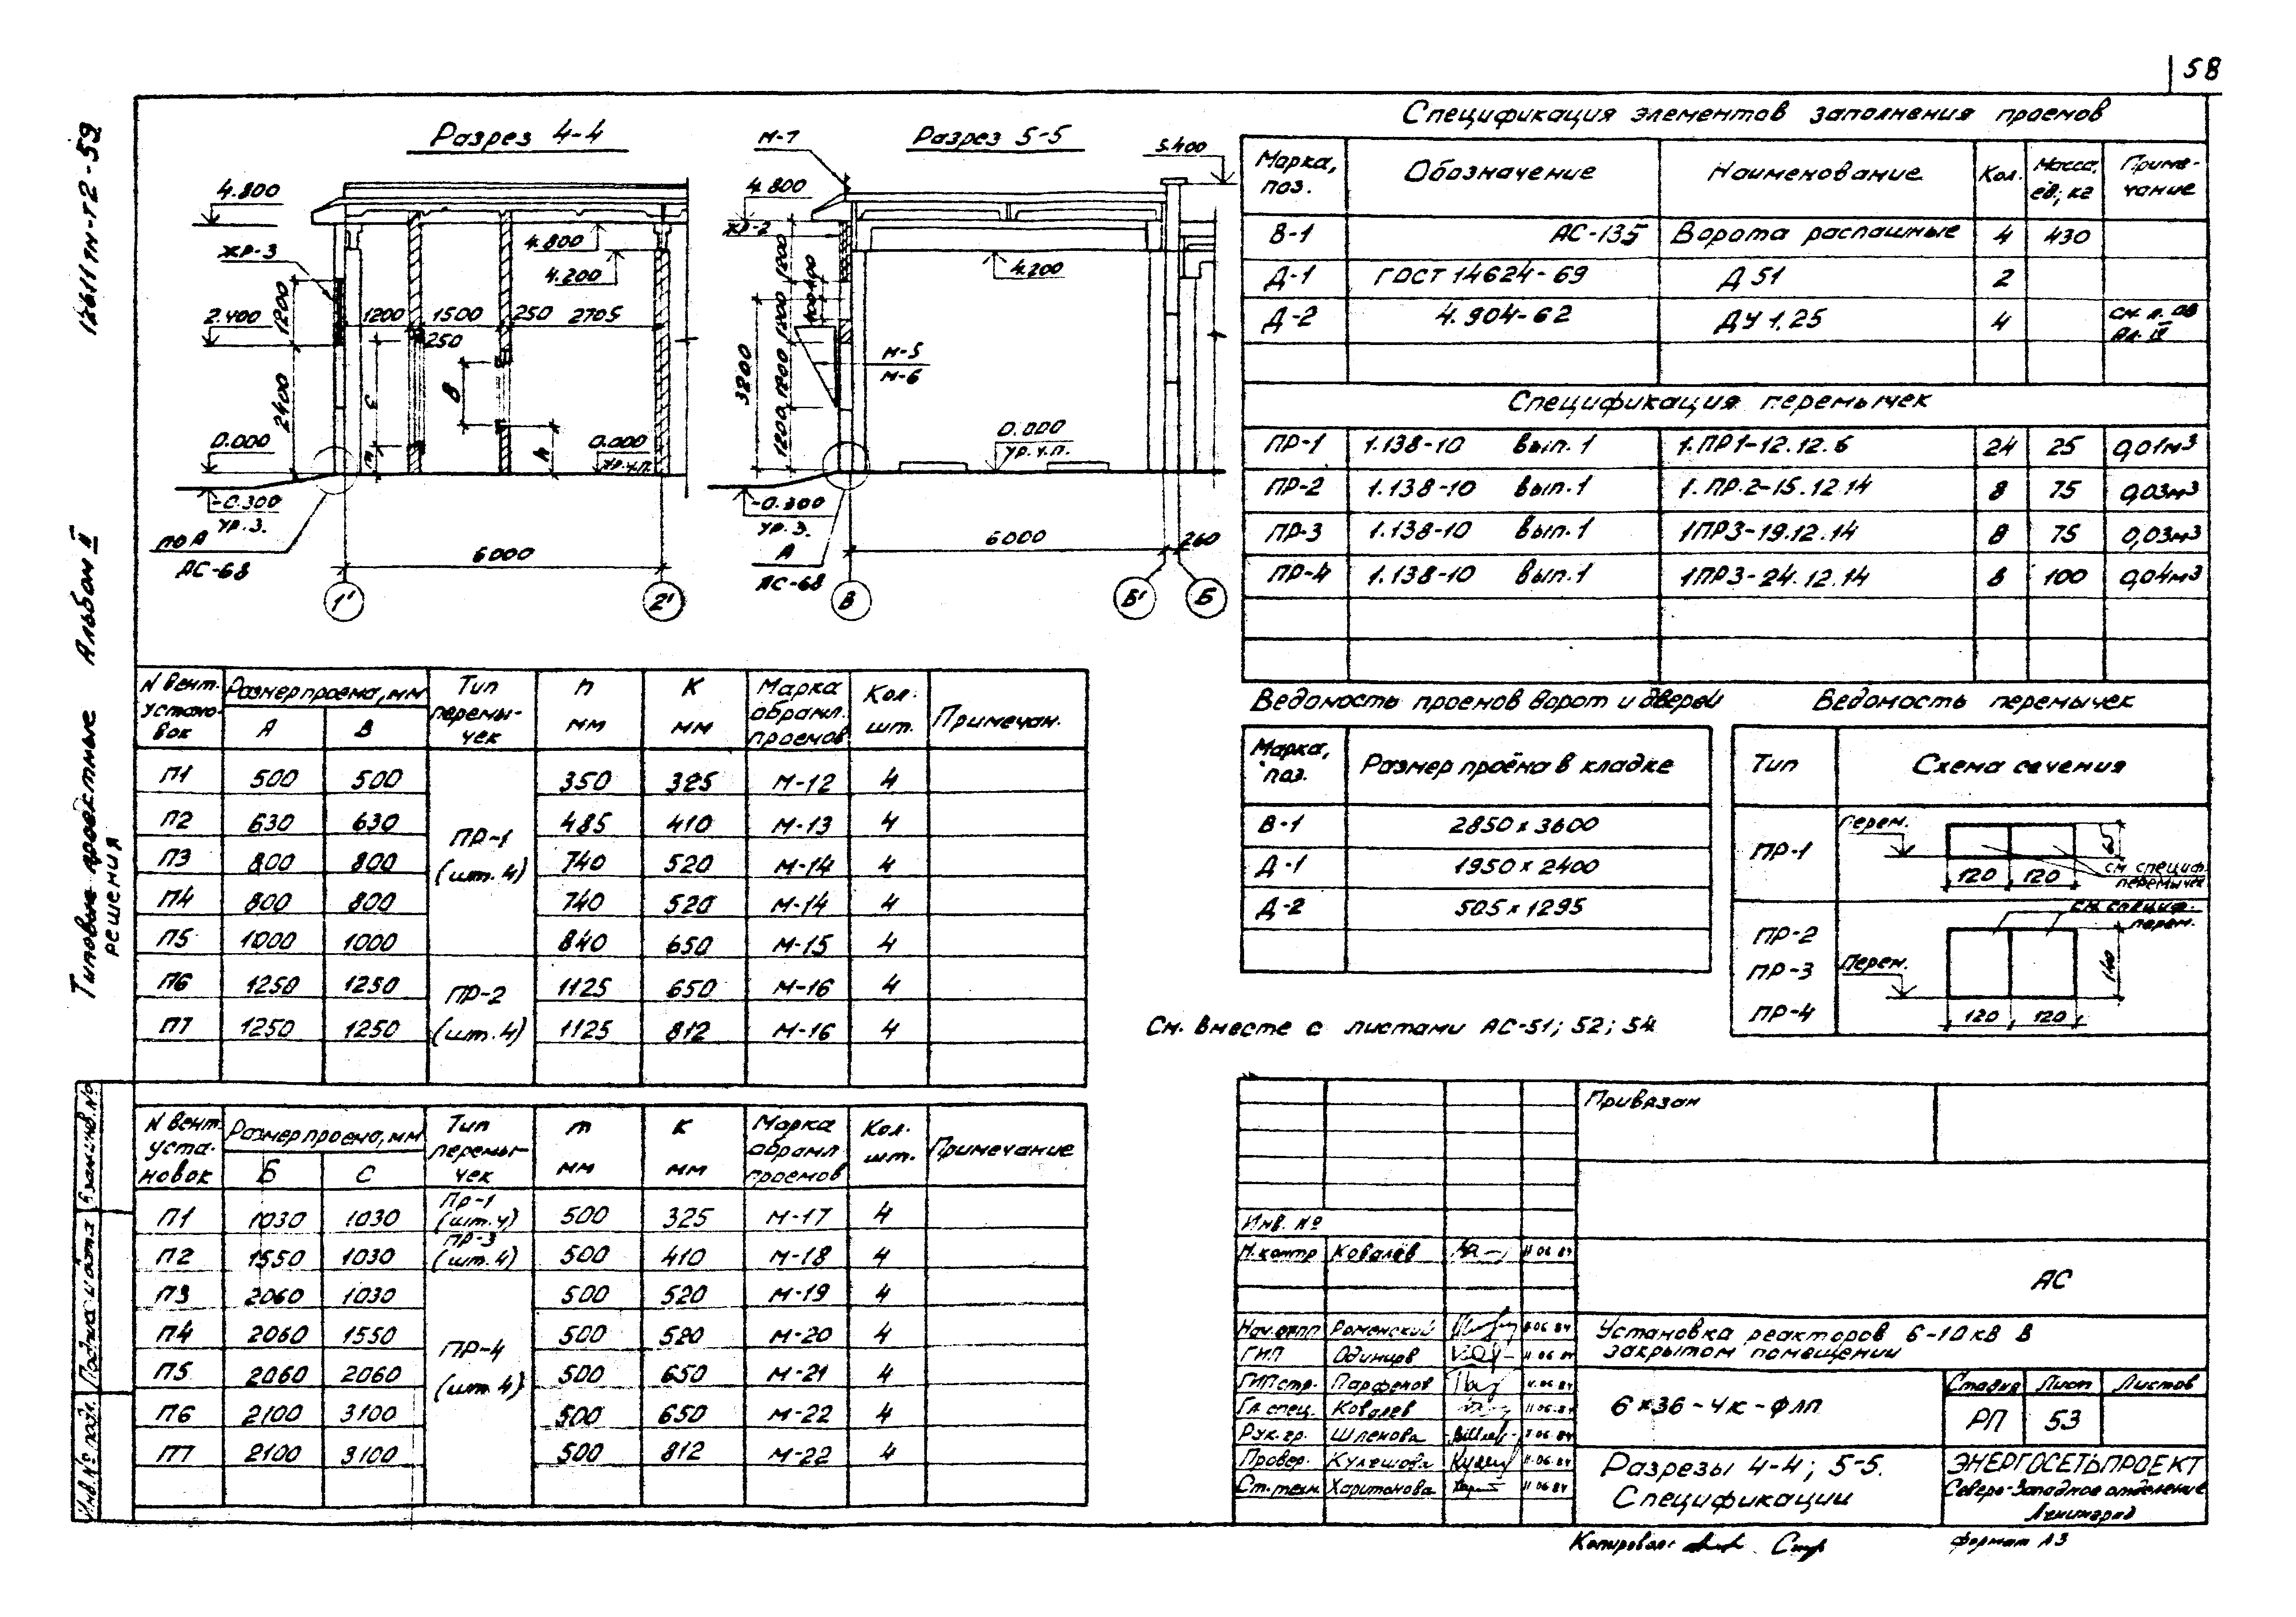 58
12611тм-т2-59
Типовые проектные решения Альбом II
Разрез 4-4
4.800
ЖР-3
2.400
1200
2400
0.000
-0.300
ур.з.
по А
АС-68
1200
1500
250
2705
250
4.800
4.200
С
m
В
h
0.000
ур.ч.п.
6000
1'
2'
Разрез 5-5
М-7
5.400
4.800
ЖР-2
4.200
М-5
М-6
3800
1200
1200
0.000
ур.ч.п.
-0.300
ур.з.
А
АС-68
6000
260
В
Б'
Б
Спецификация элементов заполнения проемов
Марка, поз. Обозначение Наименование Кол. Масса, ед; кг Примечание
В-1 АС-135 Ворота распашные 4 430
Д-1 ГОСТ 14624-69 Д 51 2
Д-2 4.904-62 ДУ 1.25 4 см. л. 08 Ал. IV
Спецификация перемычек
ПР-1 1.138-10 вып.1 1.ПР1-12.12.6 24 25 0,01м³
ПР-2 1.138-10 вып.1 1.ПР.2-15.12.14 8 75 0,03м³
ПР-3 1.138-10 вып.1 1ПР3-19.12.14 8 75 0,03м³
ПР-4 1.138-10 вып.1 1ПР3-24.12.14 8 100 0,04м³
N вент. установок Размер проема, мм А В Тип перемычек h мм К мм Марка обрамл. проемов Кол. шт. Примечан.
П1 500 500 350 325 М-12 4
П2 630 630 485 410 М-13 4
П3 800 800 740 520 М-14 4
П4 800 800 740 520 М-14 4
П5 1000 1000 840 650 М-15 4
ПР-1 (шт.4)
П6 1250 1250 1125 650 М-16 4
П7 1250 1250 1125 812 М-16 4
ПР-2 (шт.4)
N вент. установок Размер проема, мм Б С Тип перемычек m мм К мм Марка обрамл проемов Кол. шт. Примечание
П1 1030 1030 Пр-1 (шт.4) 500 325 М-17 4
П2 1550 1030 ПР-3 (шт.4) 500 410 М-18 4
П3 2060 1030 500 520 М-19 4
П4 2060 1550 500 520 М-20 4
П5 2060 2060 500 650 М-21 4
П6 2100 3100 500 650 М-22 4
П7 2100 3100 500 812 М-22 4
ПР-4 (шт.4)
Ведомость проемов ворот и дверей
Марка, поз. Размер проёма в кладке
В-1 2850 х 3600
Д-1 1950 х 2400
Д-2 505 х 1295
Ведомость перемычек
Тип Схема сечения
ПР-1
Перем.
120 120
65
см специф. перемычек
ПР-2
ПР-3
ПР-4
Перем.
см. специф. перем.
120 120
140
См. вместе с листами АС-51; 52; 54
Привязан
Инв. №
Н.контр Ковалёв 11 06 84
АС
Нач.отпп Роменский 11 06 84
ГИП Одинцов 11 06 84
ГИПстр. Парфенов 11.06 84
Гл. спец. Ковалев 11 06.84
Рук. гр. Шленова 11 06 84
Провер. Кулешова 11.06.84
Ст.техн Харитонова 11 06 84
Установка реакторов 6-10 кВ в
закрытом помещении
6×36-4к-ФЛП
Стадия Лист Листов
РП 53
Разрезы 4-4; 5-5.
Спецификации
ЭНЕРГОСЕТЬПРОЕКТ
Северо-Западное отделение
Ленинград
Копировал:
формат А3
Взам.инв.№
Подпись и дата
Инв.№ подл.